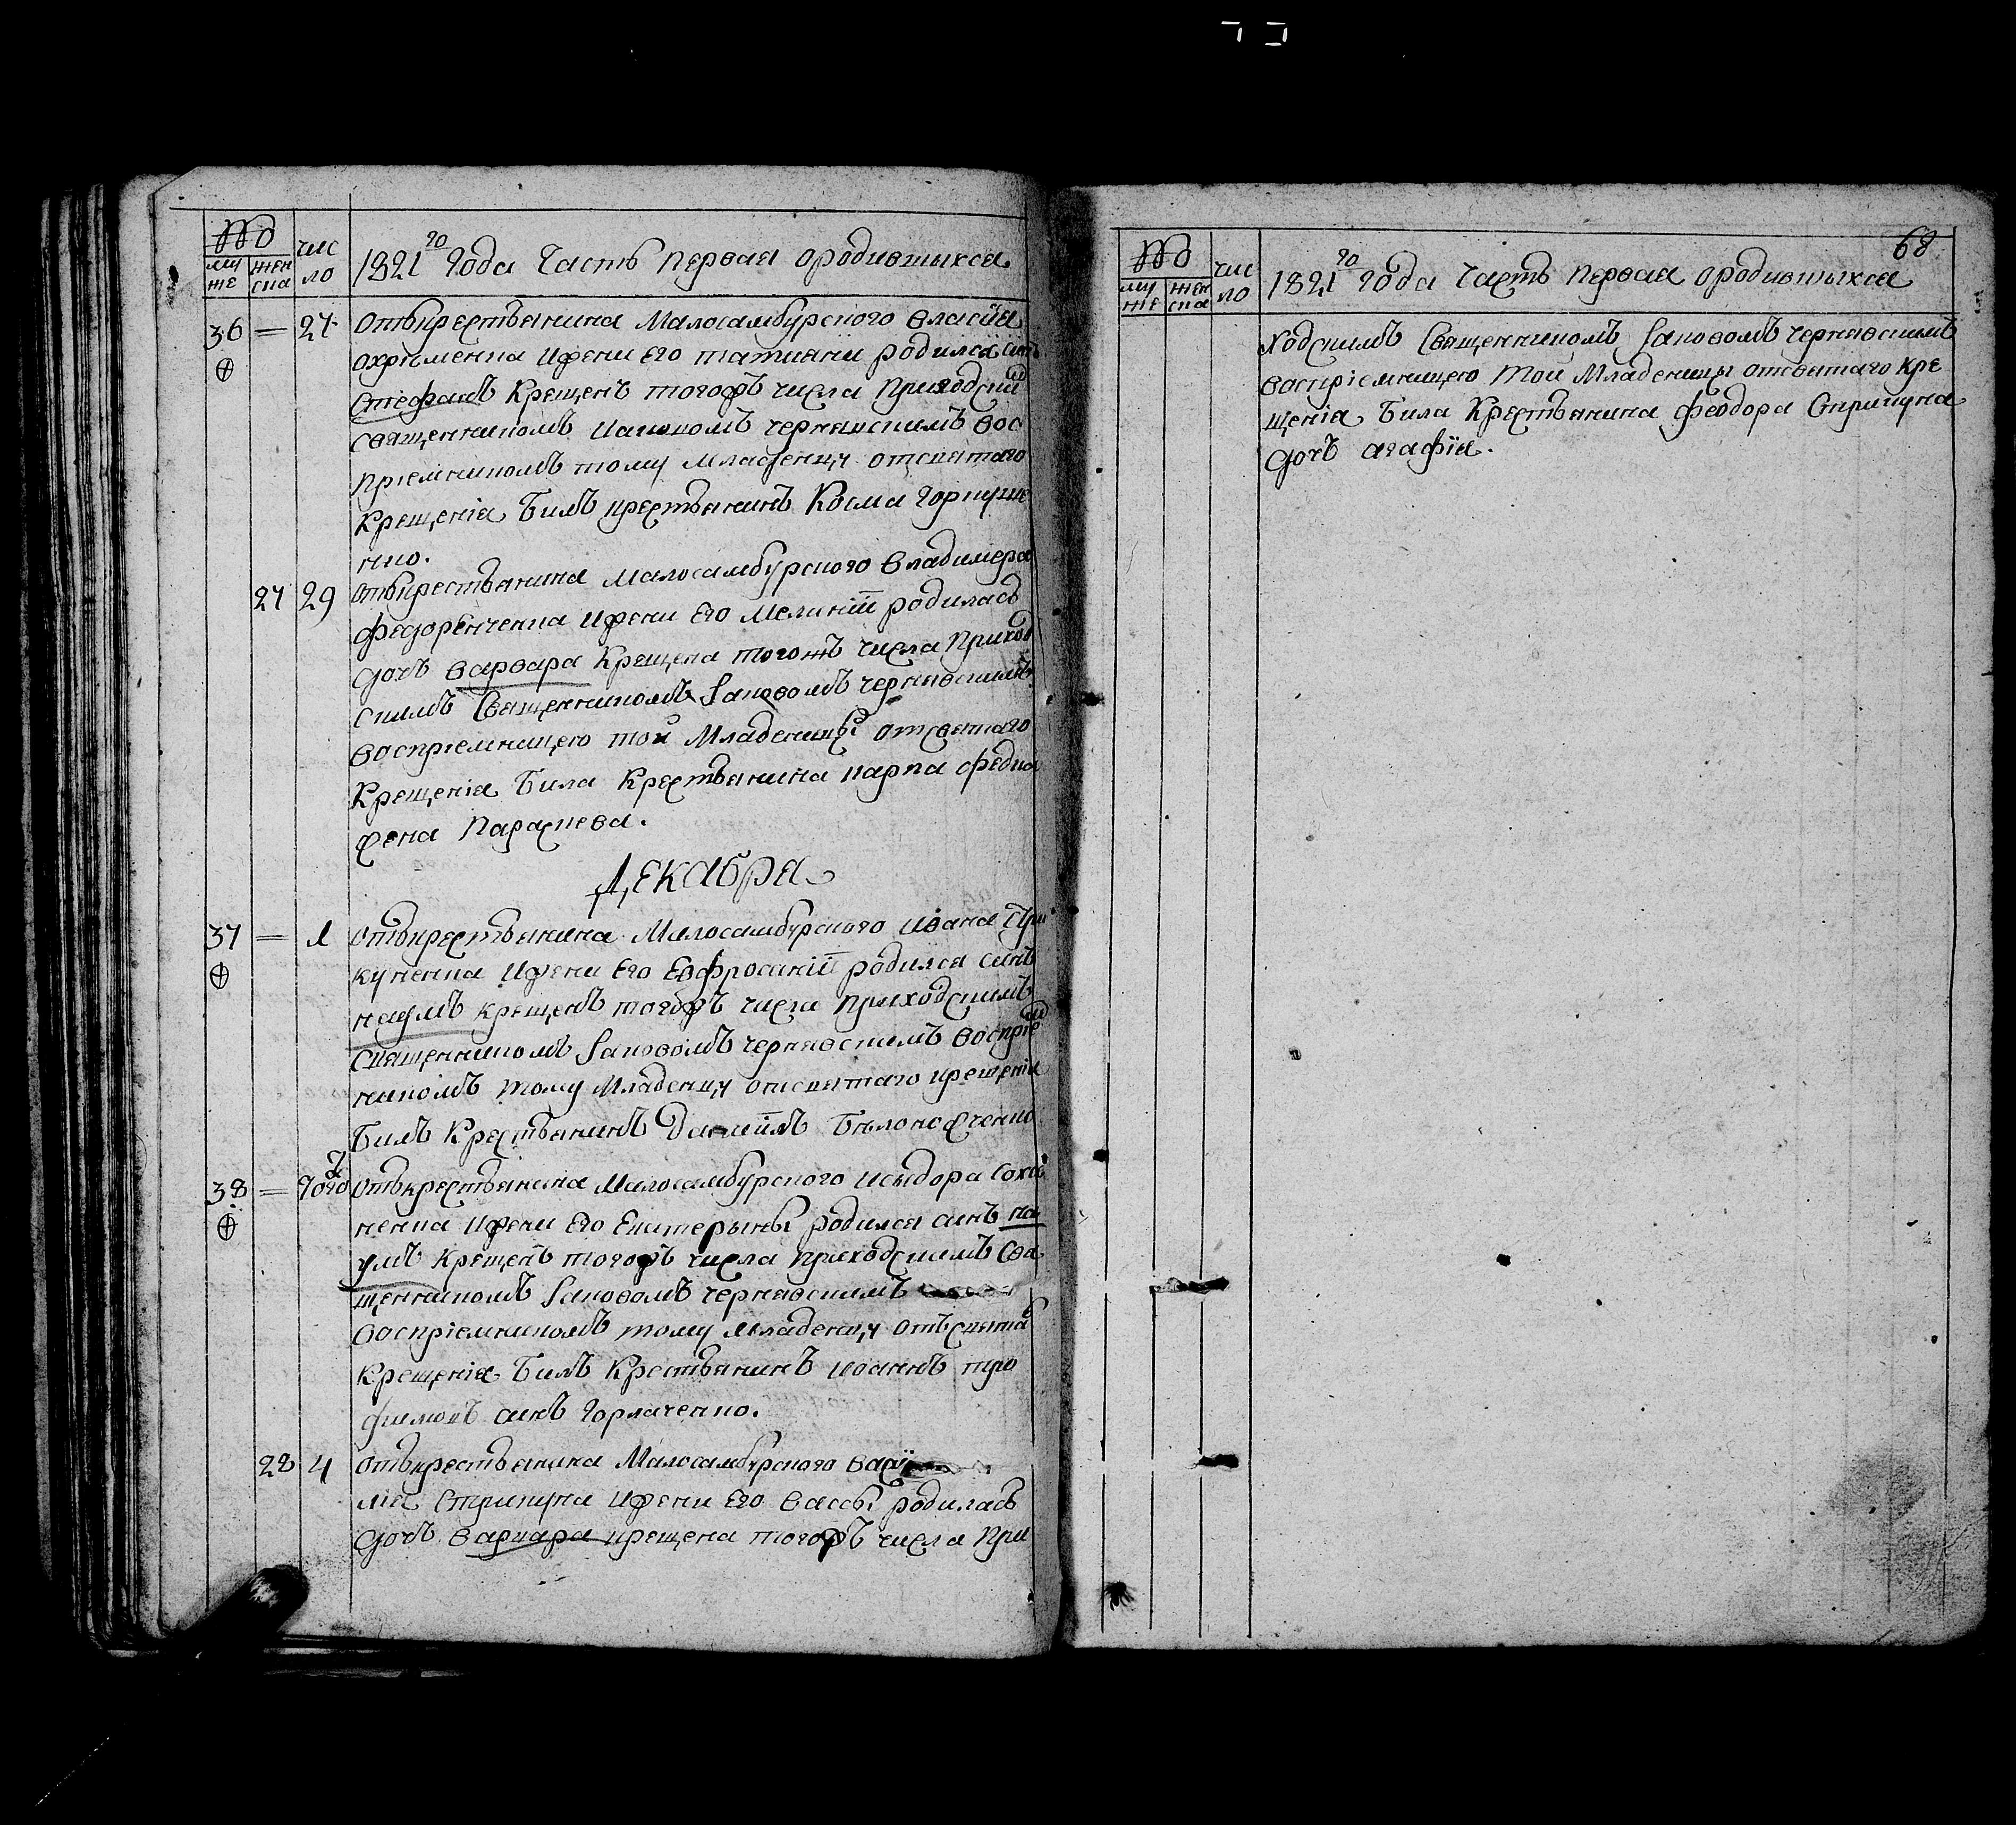 муже женска число 1821 го Года Часть первая ородившихся
36 = 27 отъкрестьянина Малосамбурского власїя
охрѣменка ижени Его татияни родился синъ
Стефанъ Крещенъ тогожъ числа приходским
священникомъ Іаковомъ чернявскимъ вос
пріемникомъ тому Младенцу отсвятаго
Крещенія Билъ крестьянинъ Косма Горкуше
нко.
27 29 отъкрестьянина Малосамбурского владимера
федорѣнченка ижени Его Меланіи родилась
дочъ варвара Крещена тогожъ числа приход
скимъ Священникомъ Іаковомъ чернявскимъ
воспріемницею той Младеницы отсвятаго
Крещенія Била Крестьянина карпа
жена Параскева.
Декабря
37 = 1 отъкрестьянина Малосамбурского ивана
куненка ижени Его Евфросиніи родился синъ
наумъ крещенъ тогожъ числа приходскимъ
священникомъ Іаковомъ чернявскимъ воспріем
никомъ тому Младенцу отсвятаго крещенія
Билъ Крестьянинъ Даніилъ
38 = того отъкрестьянина Малосамбурского исидора
ненка ижени Его Екатерыны родился синъ на
умъ крещенъ тогожъ числа приходскимъ Свя
щенникомъ Іаковомъ чернявскимъ
воспріемникомъ тому младенцу отъсвята
Крещенія Билъ Крестьянинъ иваннъ тро
фимовъ синъ Горлаченко.
28 4 отъкрестьянина Малосамбурского васї
лія Стрикуна ижени Его вассы родилась
дочъ варвара крещена тогожъ числа при
68
муже женска число 1821 го Года Часть первая ородившихся
ходскимъ Священникомъ Іаковомъ чернявскимъ
воспріемницею той Младеницы отсвятаго Кре
щенія Била Крестьянина феодора Стрикуна
дочъ агафїя.